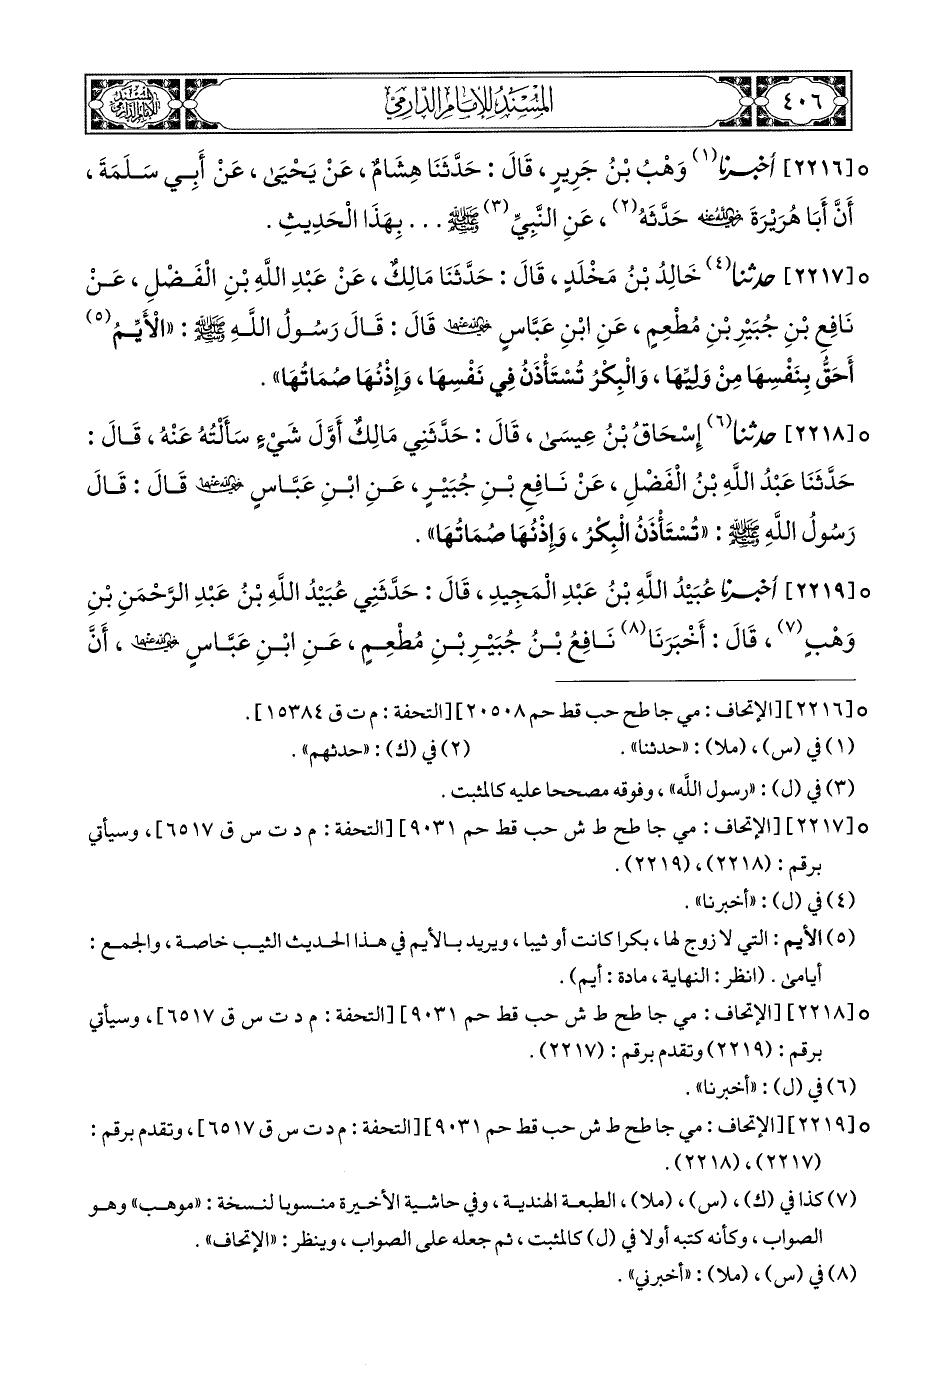 ٤٠٦
المسند للإمام الدارمي
٥ [٢٢١٦] أخبرنا(١) وَهْبُ بْنُ جَرِيرٍ، قَالَ: حَدَّثَنَا هِشَامٌ، عَنْ يَحْيَى، عَنْ أَبِي سَلَمَةَ،
أَنَّ أَبَا هُرَيْرَةَ رضي الله عنه حَدَّثَهُ(٢)، عَنِ النَّبِيِّ(٣) ﷺ ... بِهَذَا الْحَدِيثِ.
٥ [٢٢١٧] حدثنا(٤) خَالِدُ بْنُ مَخْلَدٍ، قَالَ: حَدَّثَنَا مَالِكٌ، عَنْ عَبْدِ اللَّهِ بْنِ الْفَضْلِ، عَنْ
نَافِعِ بْنِ جُبَيْرِ بْنِ مُطْعِمٍ، عَنِ ابْنِ عَبَّاسٍ رضي الله عنهما قَالَ: قَالَ رَسُولُ اللَّهِ ﷺ: «الْأَيِّمُ(٥)
أَحَقُّ بِنَفْسِهَا مِنْ وَلِيِّهَا، وَالْبِكْرُ تُسْتَأْذَنُ فِي نَفْسِهَا، وَإِذْنُهَا صُمَاتُهَا».
٥ [٢٢١٨] حدثنا(٦) إِسْحَاقُ بْنُ عِيسَى، قَالَ: حَدَّثَنِي مَالِكٌ أَوَّلَ شَيْءٍ سَأَلْتُهُ عَنْهُ، قَالَ:
حَدَّثَنَا عَبْدُ اللَّهِ بْنُ الْفَضْلِ، عَنْ نَافِعِ بْنِ جُبَيْرٍ، عَنِ ابْنِ عَبَّاسٍ رضي الله عنهما قَالَ: قَالَ
رَسُولُ اللَّهِ ﷺ: «تُسْتَأْذَنُ الْبِكْرُ، وَإِذْنُهَا صُمَاتُهَا».
٥ [٢٢١٩] أخبرنا عُبَيْدُ اللَّهِ بْنُ عَبْدِ الْمَجِيدِ، قَالَ: حَدَّثَنِي عُبَيْدُ اللَّهِ بْنُ عَبْدِ الرَّحْمَنِ بْنِ
وَهْبٍ(٧)، قَالَ: أَخْبَرَنَا(٨) نَافِعُ بْنُ جُبَيْرِ بْنِ مُطْعِمٍ، عَنِ ابْنِ عَبَّاسٍ رضي الله عنهما، أَنَّ
٥ [٢٢١٦] [الإتحاف: مي جا طح حب قط حم ٢٠٥٠٨] [التحفة: م ت ق ١٥٣٨٤].
(١) في (س)، (ملا): «حدثنا». (٢) في (ك): «حدثهم».
(٣) في (ل): «رسول الله»، وفوقه مصححا عليه كالمثبت.
٥ [٢٢١٧] [الإتحاف: مي جا طح ط ش حب قط حم ٩٠٣١] [التحفة: م د ت س ق ٦٥١٧]، وسيأتي
برقم: (٢٢١٨)، (٢٢١٩).
(٤) في (ل): «أخبرنا».
(٥) الأيم: التي لا زوج لها، بكرا كانت أو ثيبا، ويريد بالأيم في هذا الحديث الثيب خاصة، والجمع:
أيامى. (انظر: النهاية، مادة: أيم).
٥ [٢٢١٨] [الإتحاف: مي جا طح ط ش حب قط حم ٩٠٣١] [التحفة: م د ت س ق ٦٥١٧]، وسيأتي
برقم: (٢٢١٩) وتقدم برقم: (٢٢١٧).
(٦) في (ل): «أخبرنا».
٥ [٢٢١٩] [الإتحاف: مي جا طح ط ش حب قط حم ٩٠٣١] [التحفة: م د ت س ق ٦٥١٧]، وتقدم برقم:
(٢٢١٧)، (٢٢١٨).
(٧) كذا في (ك)، (س)، (ملا)، الطبعة الهندية، وفي حاشية الأخيرة منسوبا لنسخة: «موهب» وهو
الصواب، وكأنه كتبه أولا في (ل) كالمثبت، ثم جعله على الصواب، وينظر: «الإتحاف».
(٨) في (س)، (ملا): «أخبرني».